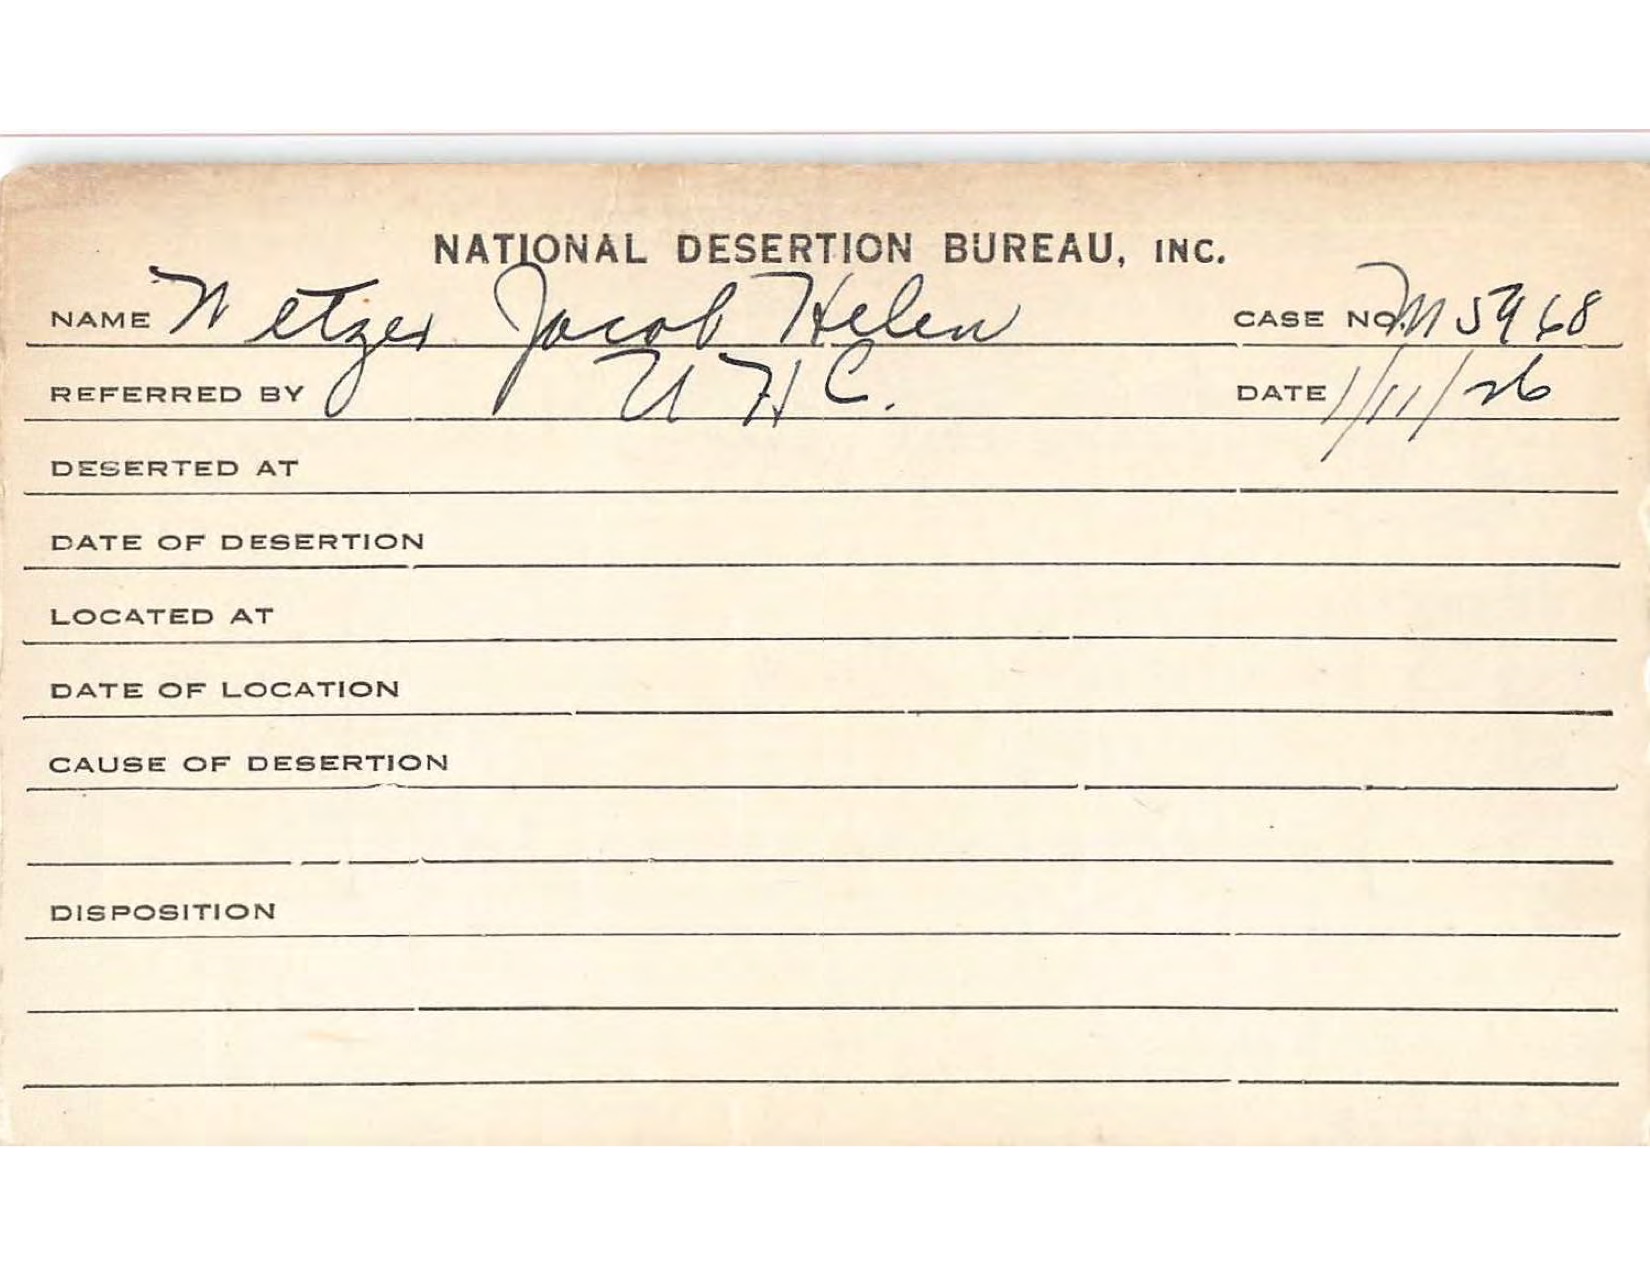 NATIONAL DESERTION BUREAU, INC.
NAME Netzer Jacob Helen CASE NO. M5968
REFERRED BY U H C. DATE 1/11/26
DESERTED AT
DATE OF DESERTION
LOCATED AT
DATE OF LOCATION
CAUSE OF DESERTION
DISPOSITION